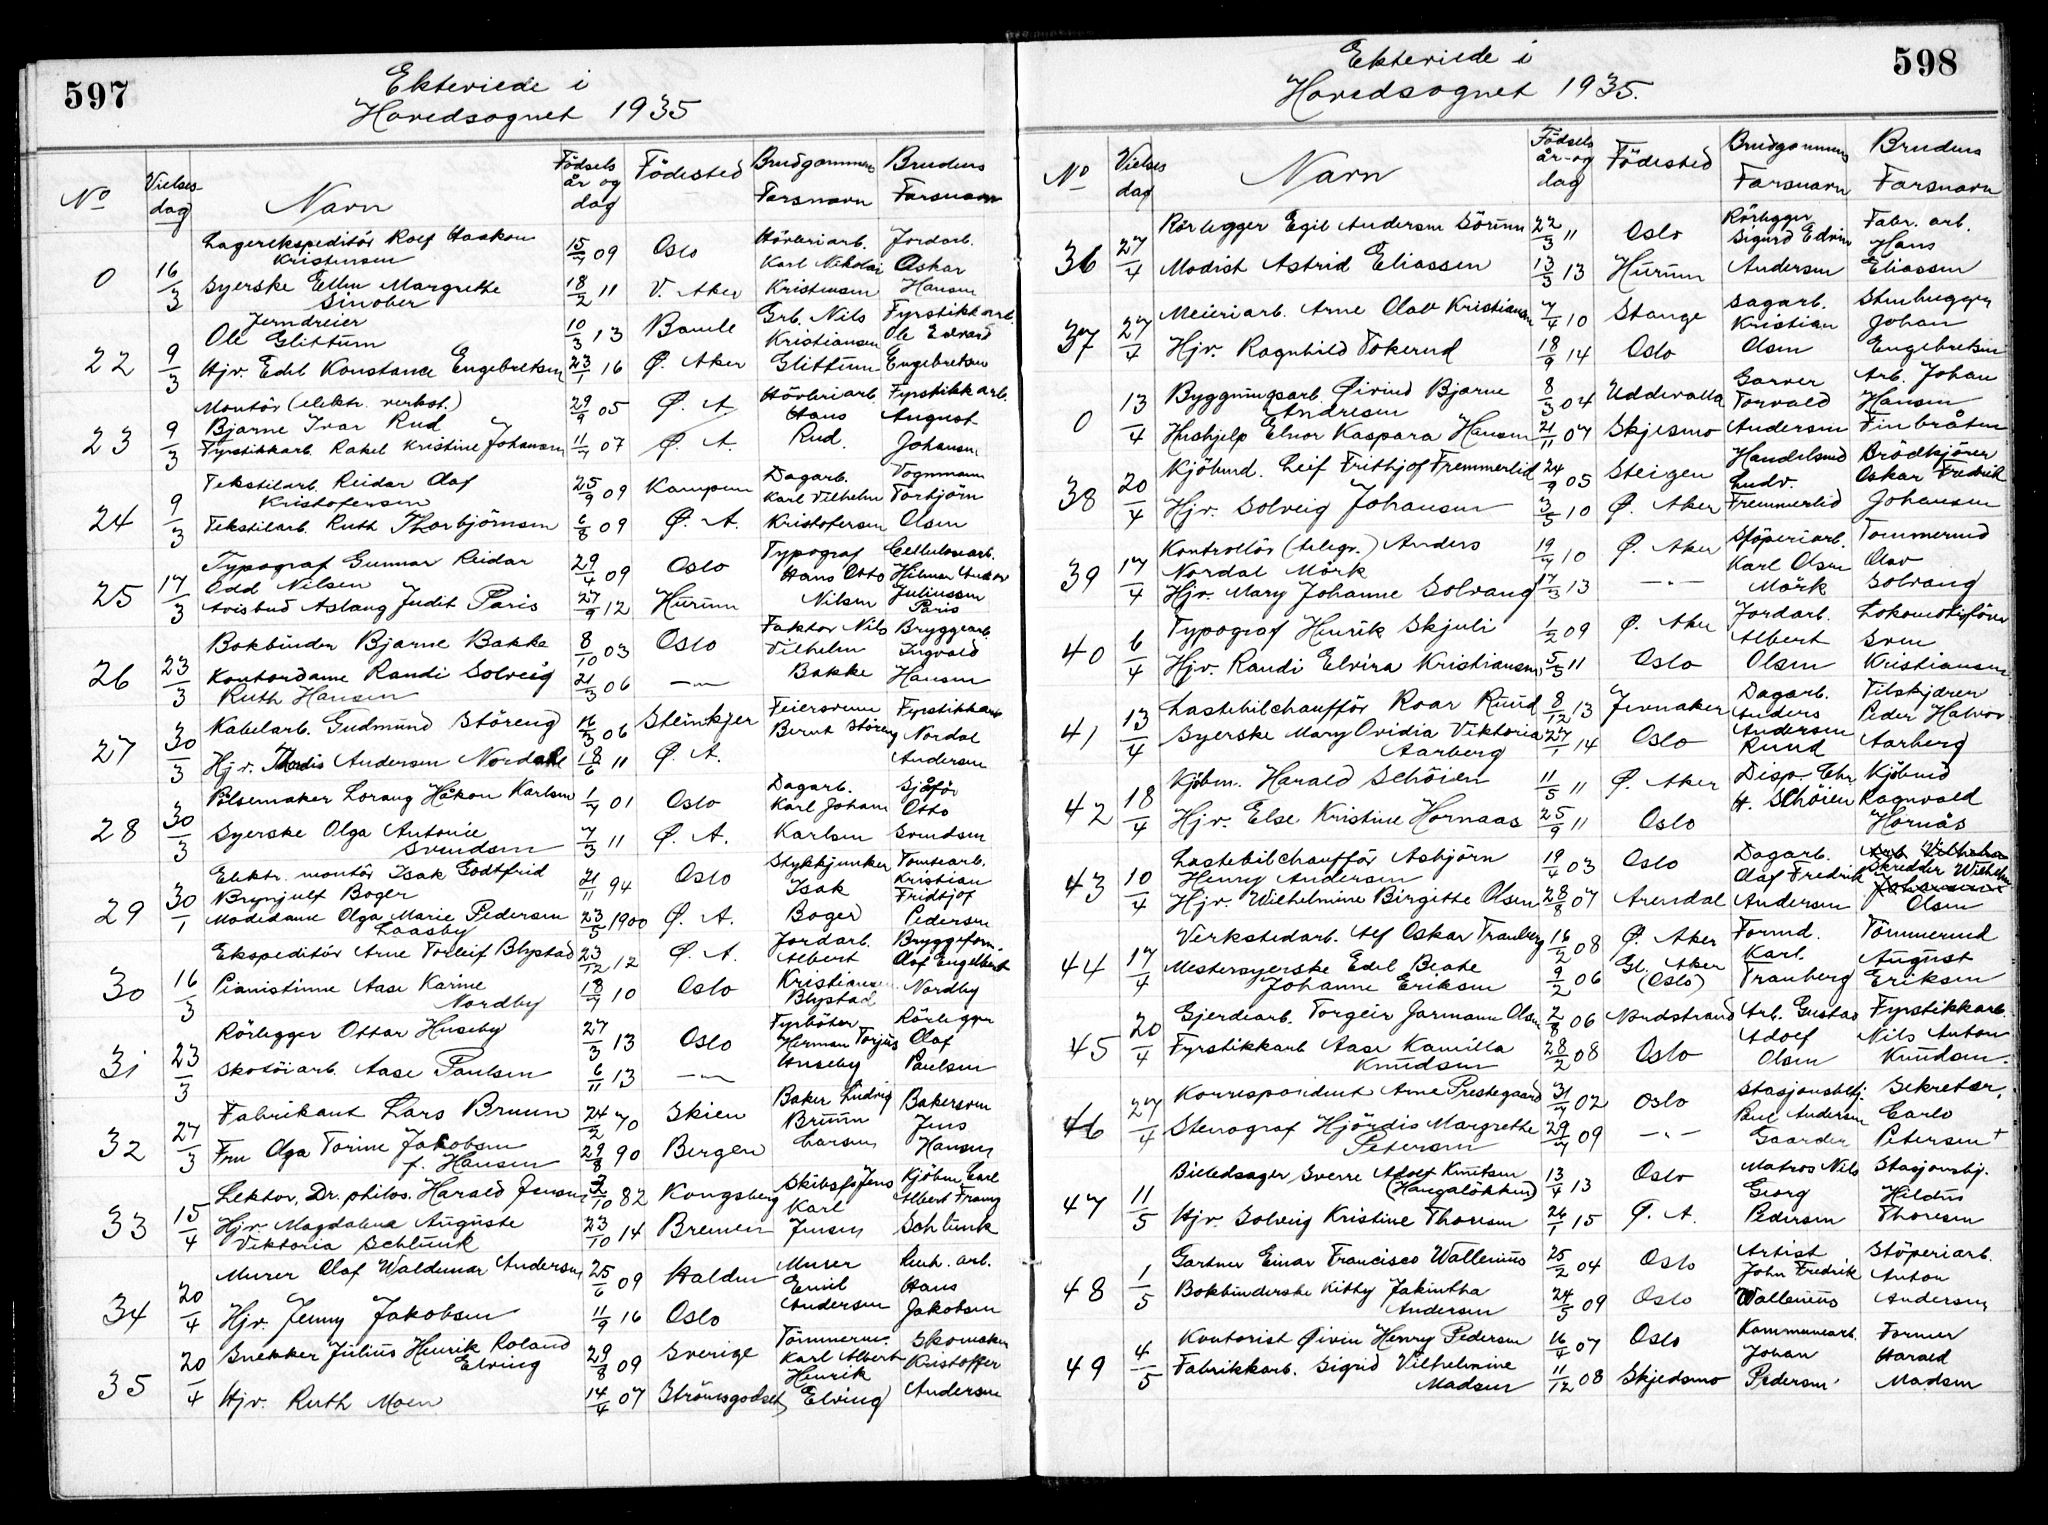 597
Ekteviede i
Hovedsognet 1935
No
Vielses-
dag
Navn
Födsels
år og
dag
Födested
Brudgommens
Farsnavn
Brudens
Farsnavn
0 16/3
Lagerekspeditör Rolf Haakon Kristensen 15/7 09 Oslo Hövleriarb. Karl Nikolai Kristensen Jordarb. Oskar Hansen
Syerske Ellen Margrethe Sinober 18/2 11 V. Aker
22 9/3
Jerndreier Ole Glittum 10/3 13 Bamle Grb. Nils Kristiansen Glittum Fyrstikkarb. Ole Edvard Engebretsen
Hjv. Edel Konstance Engebretsen 23/1 16 Ø. Aker
23 9/3
Montör (elektr. verkst.) Bjarne Ivar Rud 29/9 05 Ø. A. Hövleriarb. Hans Rud. Fyrstikkarb. August Johansen
Fyrstikkarb. Rakel Kristine Johansen 11/7 07 Ø. A.
24 9/3
Tekstilarb. Reidar Olaf Kristofersen 25/9 09 Kampen Dagarb. Karl Vilhelm Kristofersen Vognmann Torbjörn Olsen
Tekstilarb. Ruth Thorbjörnsen 6/8 09 Ø. A.
25 17/3
Typograf Gunnar Reidar Odd Nilsen 29/4 09 Oslo Typograf Hans Otto Nilsen Cellulosearb. Hilmar Juliussen Paris
Avisbud Aslaug Judit Paris 27/9 12 Hurum
26 23/3
Bokbinder Bjarne Bakke 8/10 03 Oslo Faktor Nils Vilhelm Bakke Bryggearb. Ingvald Hansen
Kontordame Randi Solveig Ruth Hansen 21/3 06 —"—
27 30/3
Kabelarb. Gudmund Störeng 16/3 06 Steinkjer Feiersvenn Bernt Störeng Fyrstikkarb. Nordal Andersen
Hjv. Thordis Andersen Nordahl 18/6 11 Ø. A.
28 30/3
Pölsemaker Lorang Håkon Karlsen 1/7 01 Oslo Dagarb. Karl Johan Karlsen Sjåför Otto Svendsen
Syerske Olga Antonie Svendsen 7/3 11 Ø. A.
29 30/1
Elektr. montör Isak Godtfrid Brynjulf Boger 21/11 94 Oslo Stykkjunker Isak Boger Tomtearb. Kristian Fridtjof Pedersen
Modedame Olga Marie Pedersen Laasby 23/5 1900 Ø. A.
30 16/3
Ekspeditör Arne Torleif Blystad 23/12 12 Ø. A. Jordarb. Albert Kristiansen Blystad Bryggeform. Olaf Engelbert Nordby
Pianistinne Aase Karine Nordby 18/7 10 Oslo
31 23/3
Rörlegger Ottar Huseby 27/3 13 Oslo Fyrböter Herman Torjus Huseby Rörlegger Olaf Paulsen
Skotöiarb. Aase Paulsen 6/11 13 —"—
32 27/3
Fabrikant Lars Bruun 24/2 70 Skien Baker Ludvig Bruun Larsen Bakersven Jens Hansen
Fru Olga Torine Jakobsen f. Hansen 29/8 90 Bergen
33 15/4
Lektor, Dr. philos. Harald Jensen 3/10 82 Kongsberg Skibsf. Jens Karl Jensen Kjöbm. Carl Albert Franz Schlunk
Hjv. Magdalena Auguste Viktoria Schlunk 23/10 14 Bremen
34 20/4
Murer Olaf Waldemar Andersen 25/6 09 Halden Murer Emil Andersen Renh. arb. Hans Jakobsen
Hjv. Jenny Jakobsen 11/9 16 Oslo
35 20/4
Snekker Julius Henrik Roland Elving 29/8 09 Sverige Tömmerm. Karl Albert Henrik Elving Skomaker Kristoffer Andersen
Hjv. Ruth Moen 14/4 07 Strömsgodset
598
Ekteviede i
Hovedsognet 1935.
No
Vielses
dag
Navn
Födsels
år- og
dag
Födested
Brudgommens
Farsnavn
Brudens
Farsnavn
36 27/4
Rörlegger Egil Andersen Sörum 22/3 11 Oslo Rörlegger Sigurd Edvin Andersen Fabr. arb. Hans Eliassen
Modist Astrid Eliassen 13/3 13 Hurum
37 27/4
Meieriarb. Arne Olav Kristiansen 7/4 10 Stange Sagarb. Kristian Olsen Stenhugger Johan Engebretsen
Hjv. Ragnhild Tokerud 18/9 14 Oslo
0 13/4
Bygningsarb. Øivind Bjarne Andresen 8/3 04 Uddevalla Garver Torvald Andersen Arb. Johan Hansen Finbråten
Hushjelp Elnor Kaspara Hansen 21/11 07 Skjesmo
38 20/4
Kjöbmd. Leif Frithjof Fremmerlid 24/9 05 Steigen Handelsmd Ludv. Fremmerlid Brödkjörer Oskar Fredrik Johansen
Hjv. Solveig Johansen 3/5 10 Ø. Aker
39 17/4
Kontrollör (telegr.) Anders Nordal Mörk 19/7 10 Ø. Aker Stöperiarb. Karl Olsen Mörk Tömmermd Olav Solvang
Hjv. Mary Johanne Solvang 17/3 13 —"—
40 6/4
Typograf Henrik Skjuli 1/2 09 Ø. Aker Jordarb. Albert Olsen Lokomotivförer Sven Kristiansen
Hjv. Randi Elvira Kristiansen 5/3 11 Oslo
41 13/4
Lastebilchaufför Roar Ruud 8/12 13 Jevnaker Dagarb. Anders Andersen Ruud Filskjærer Peder Halvor Aarberg
Syerske Mary Ovidia Viktoria Aarberg 27/1 14 Oslo
42 18/4
Kjöbm. Harald Schöien 11/5 11 Ø. Aker Disp. Chr. H. Schöien Kjöbmd Ragnvald Hornås
Hjv. Else Kristine Hornaas 25/9 11 Oslo
43 10/4
Lastebilchaufför Asbjörn Henry Andersen 19/4 03 Oslo Dagarb. Olaf Fredrik Andersen Skredder Wilhelm Olsen
Hjv. Wilhelmine Birgitte Olsen 28/8 07 Arendal
44 17/4
Verkstedarb. Alf Oskar Tranberg 16/2 08 Ø. Aker Formd. Karl Tranberg Tömmermd August Eriksen
Mestersyerske Edel Beate Johanne Eriksen 9/2 06 Gl. Aker (Oslo)
45 20/4
Gjerdearb. Torgeir Jarmann Olsen 2/8 06 Nordstrand Arb. Gustav Adolf Olsen Fyrstikkarb. Nils Anton Knudsen
Fyrstikkarb Aase Kamilla Knudsen 28/2 08 Oslo
46 27/4
Korrespondent Arne Prestegaard 31/7 02 Oslo Stasjonsbetj. Paul Andersen Gaarder Sekretær, Carlo Petersen +
Stenograf Hjördis Margrethe Petersen 29/7 09 —"—
47 11/5
Billedsager Sverre Adolf Knutsen (Haugalökken) 13/4 13 Oslo Matros Nils Georg Pedersen Stasjonsbtj. Hildus Thoresen
Hjv. Solveig Kristine Thoresen 26/1 15 Ø. A.
48 1/5
Gartner Einar Francisco Wallenius 25/2 04 Oslo Artist John Fredrik Wallenius Stöperiarb. Anton Andersen
Bokbinderske Kitty Jakintha Andersen 24/5 09 Oslo
49 4/5
Kontorist Øivin Henry Pedersen 16/4 07 Oslo Kommunearb. Johan Pedersen Former Harald Madsen
Fabrikkarb. Sigrid Vilhelmine Madsen 11/12 08 Skjedsmo